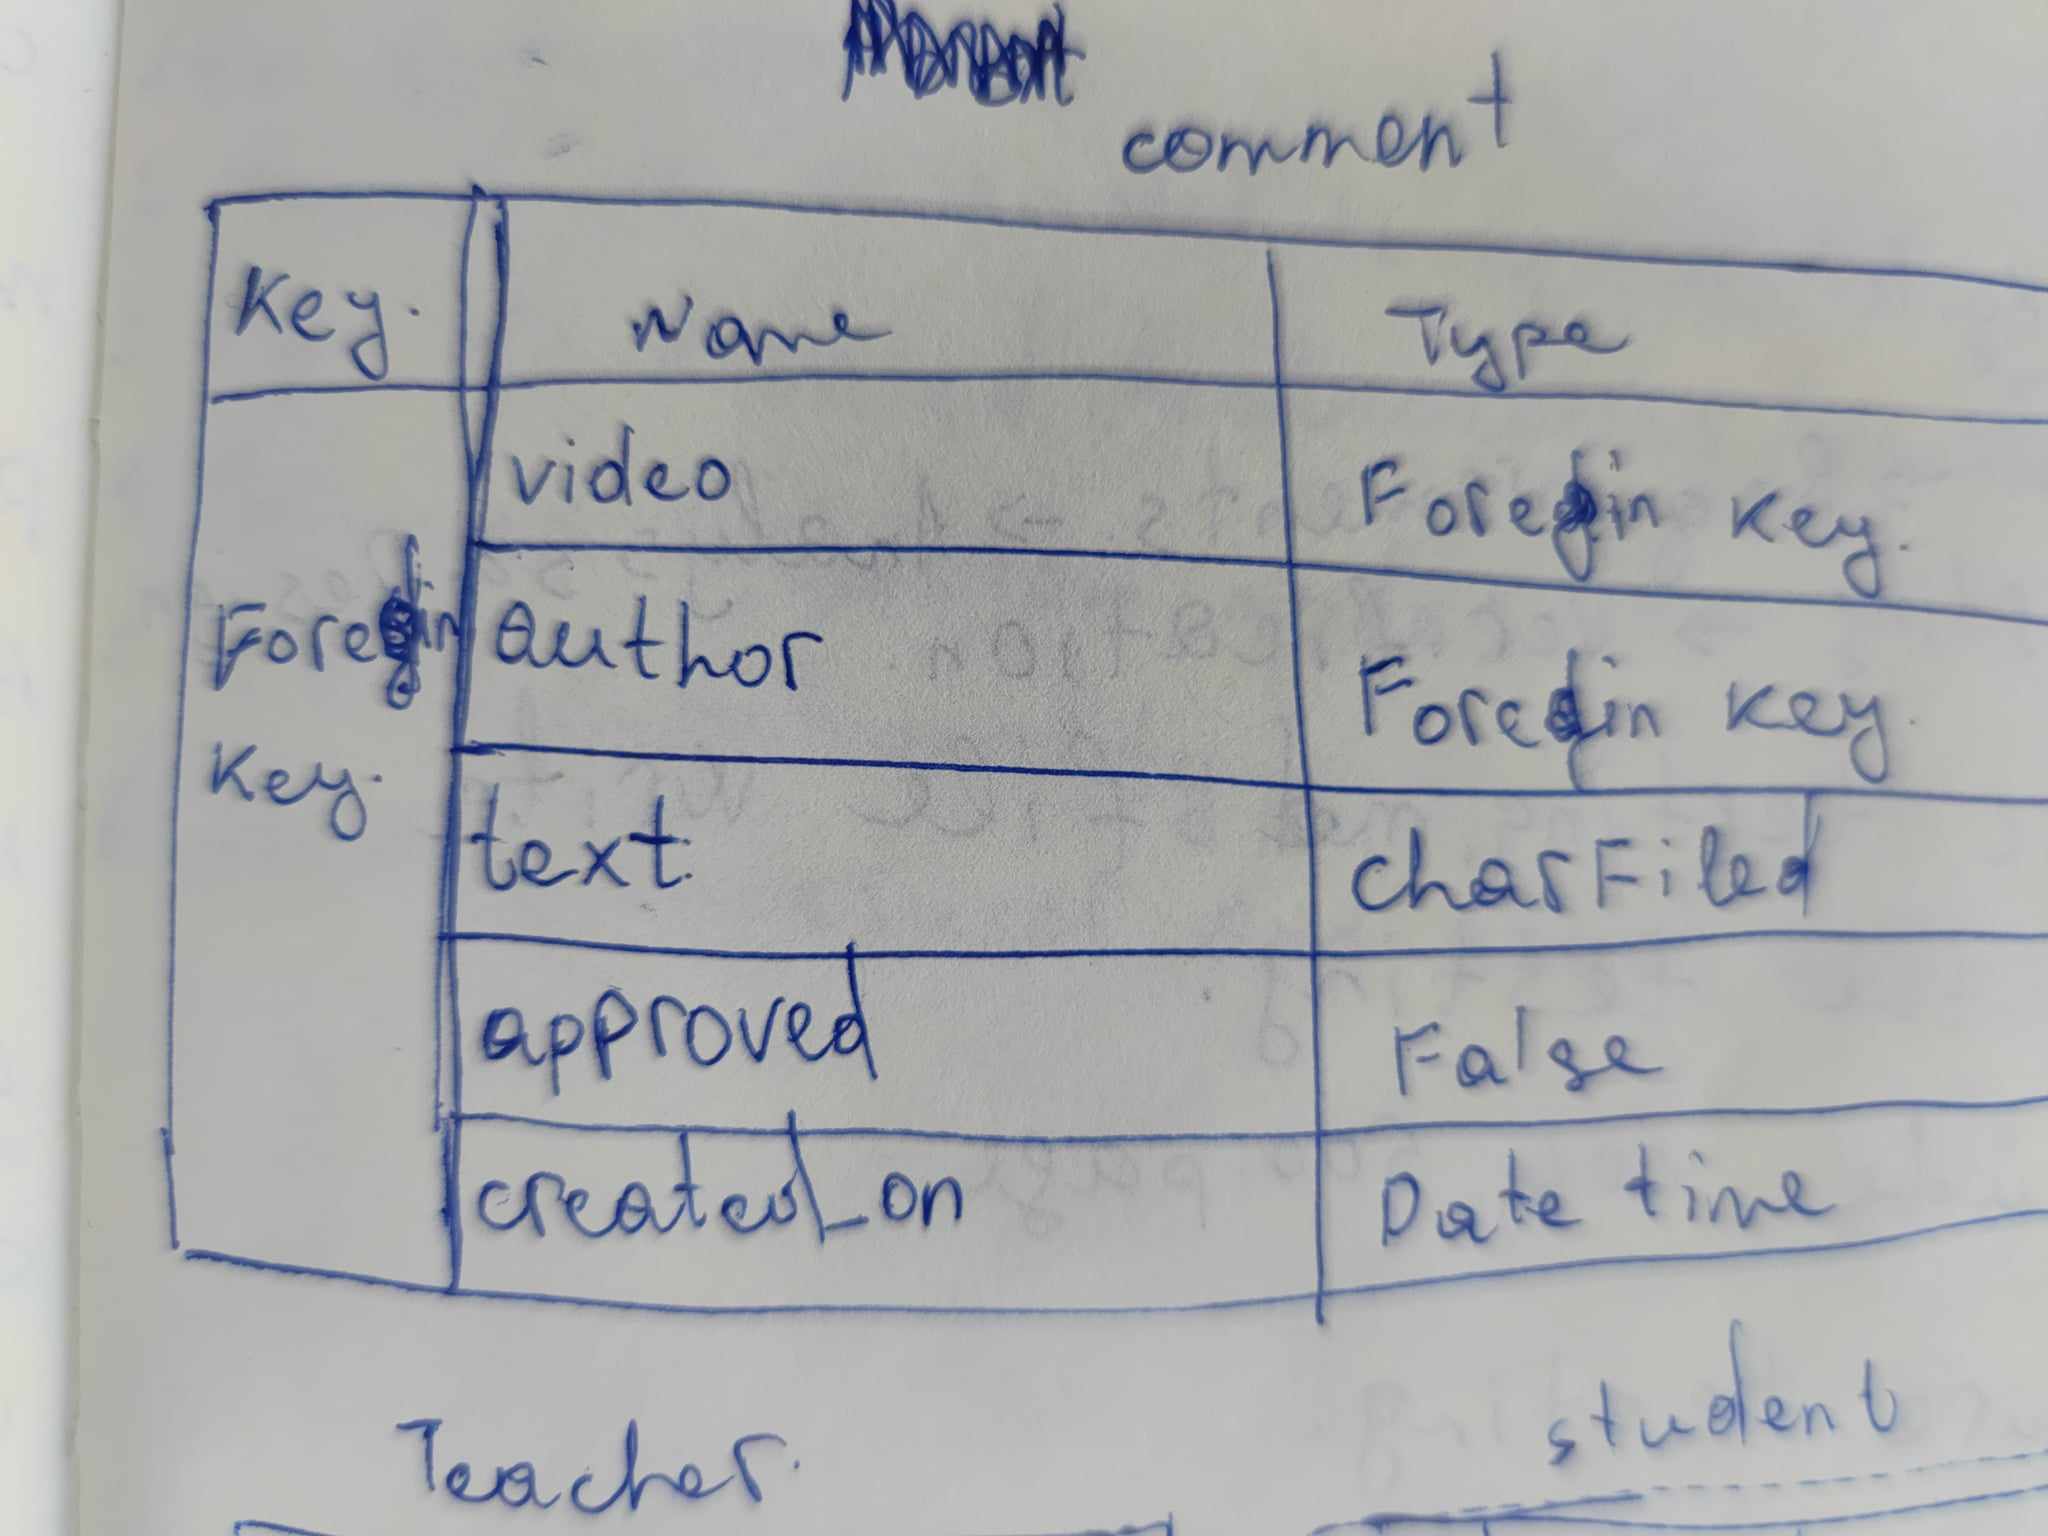 comment
Key. Name Type
video Foregin key.
Foregin author Foregin key.
Key. text. CharFiled
approved False
created_on Date time
Teacher. student